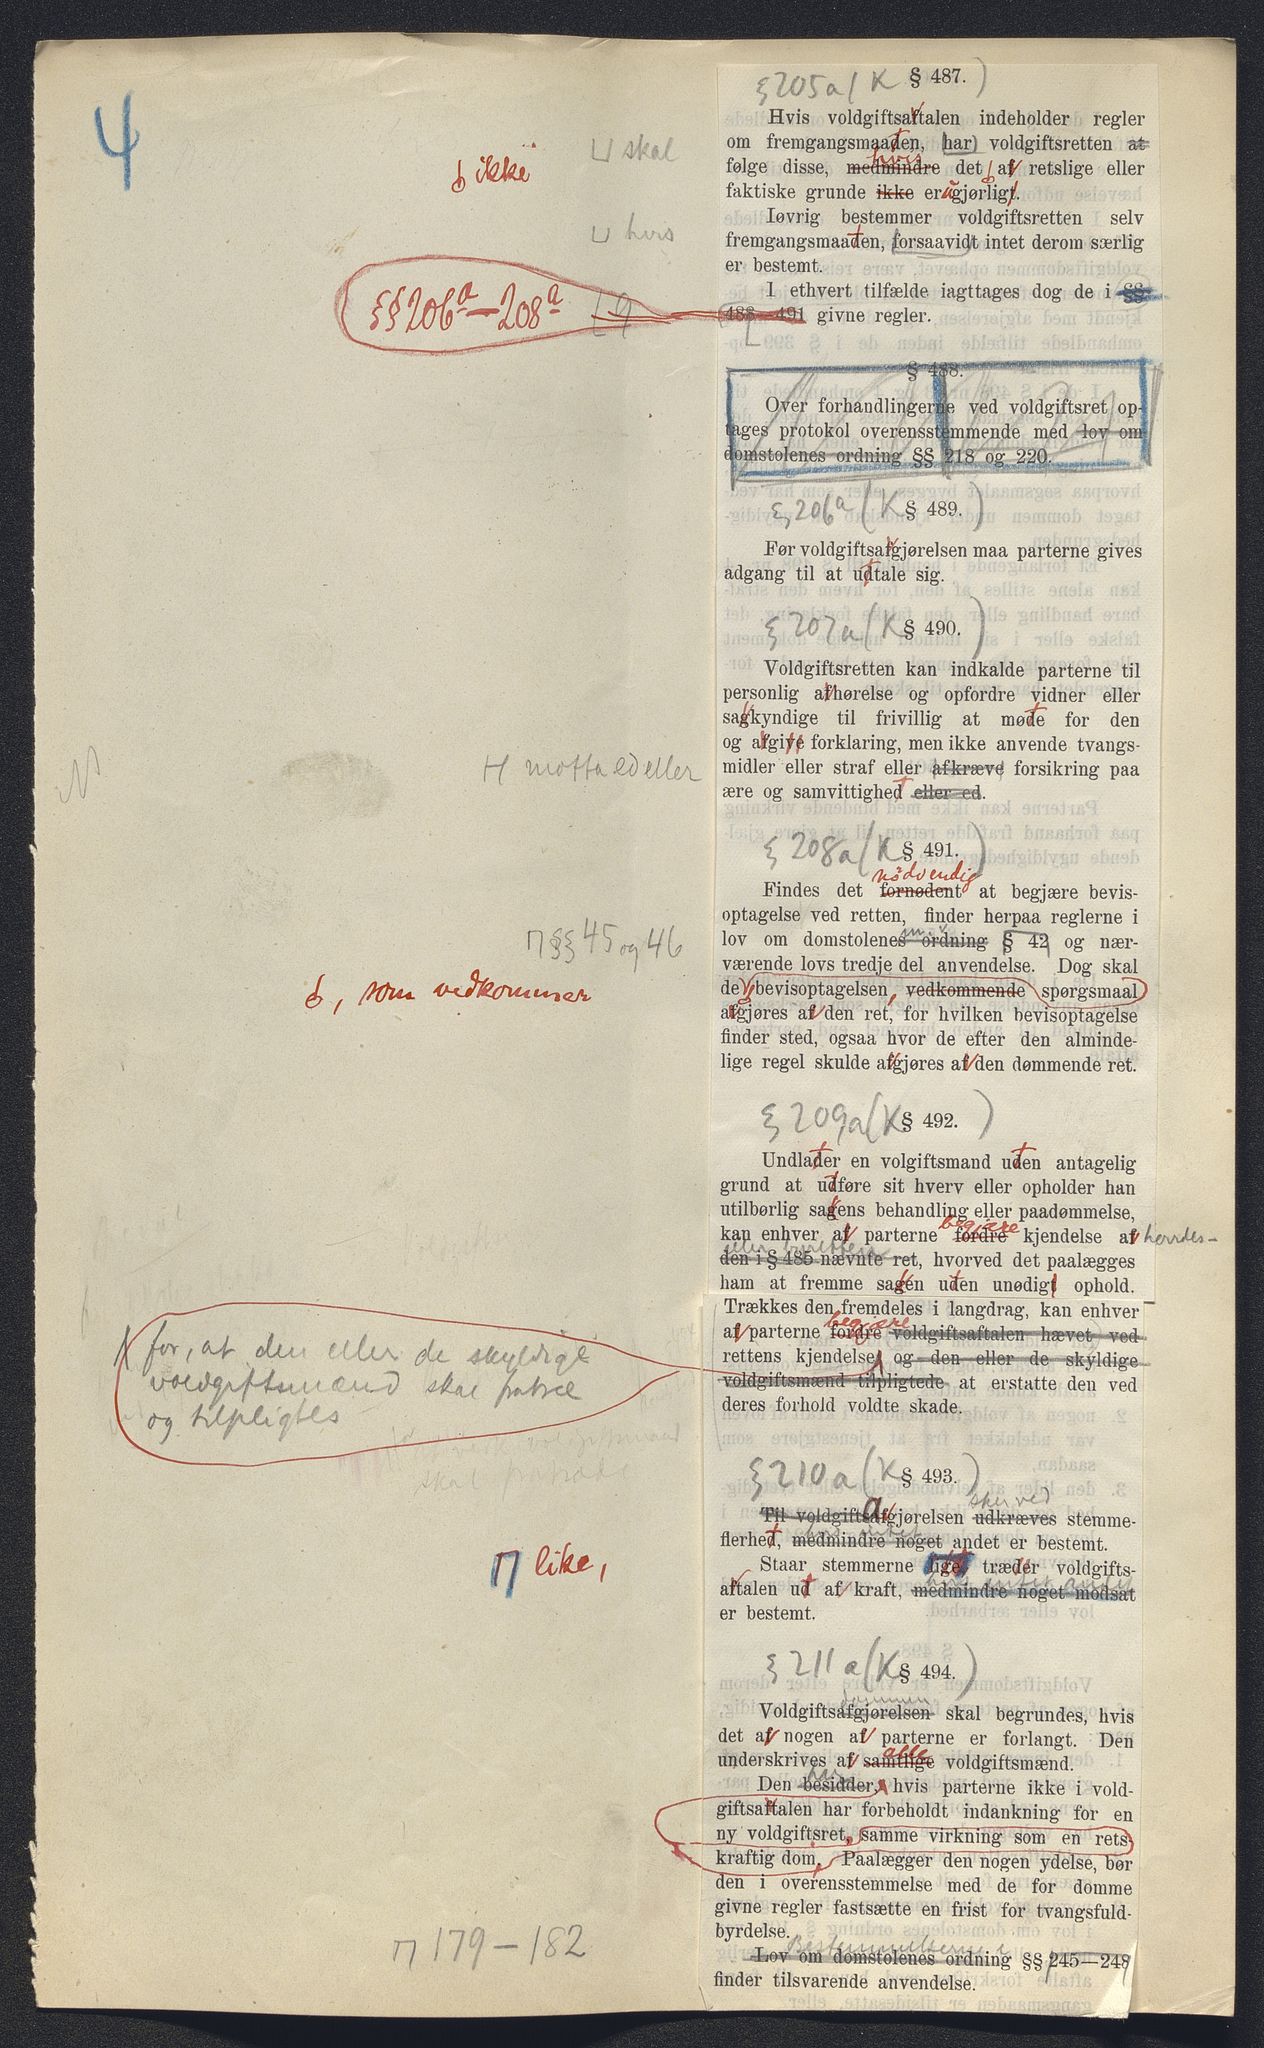 4
§ 205a (K § 487.)
Hvis voldgiftsaftalen indeholder regler
om fremgangsmaaden, har voldgiftsretten at
⊔ skal
hvis
følge disse, medmindre det af retslige eller
ikke
faktiske grunde ikke er ugjørligt.
Iøvrig bestemmer voldgiftsretten selv
⊔ hvis
fremgangsmaaden, forsaavidt intet derom særlig
er bestemt.
I ethvert tilfælde iagttages dog de i §§
§§ 206a—208a
488—491 givne regler.
§ 488.
Over forhandlingerne ved voldgiftsret op-
tages protokol overensstemmende med lov om
domstolenes ordning §§ 218 og 220.
§ 206a (K § 489.)
Før voldgiftsafgjørelsen maa parterne gives
adgang til at udtale sig.
§ 207a (K § 490.)
Voldgiftsretten kan indkalde parterne til
personlig afhørelse og opfordre vidner eller
sagkyndige til frivillig at møde for den
og afgive forklaring, men ikke anvende tvangs-
H motta ed eller
midler eller straf eller afkræve forsikring paa
ære og samvittighed eller ed.
§ 208a (K § 491.)
nødvendig
Findes det fornødent at begjære bevis-
optagelse ved retten, finder herpaa reglerne i
⊓ §§ 45 og 46
lov om domstolenes ordning § 42 og nær-
værende lovs tredje del anvendelse. Dog skal
, som vedkommer
de bevisoptagelsen, vedkommende spørgsmaal
afgjøres af den ret, for hvilken bevisoptagelse
finder sted, ogsaa hvor de efter den alminde-
lige regel skulde afgjøres af den dømmende ret.
§ 209a (K § 492.)
Undlader en volgiftsmand uden antagelig
grund at udføre sit hverv eller opholder han
utilbørlig sagens behandling eller paadømmelse,
begjære
kan enhver af parterne fordre kjendelse af herreds-
eller byretten
den i § 485 nævnte ret, hvorved det paalægges
ham at fremme sagen uden unødigt ophold.
Trækkes den fremdeles i langdrag, kan enhver
begjære
af parterne fordre voldgiftsaftalen hævet ved
for, at den eller de skyldige
voldgiftsmænd skal fratræ
og tilpligtes
rettens kjendelse og den eller de skyldige
voldgiftsmænd tilpligtede at erstatte den ved
deres forhold voldte skade.
voldgiftsmænd
skal fratræde
§ 210a (K § 493.)
sker ved
Til voldgiftsafgjørelsen udkræves stemme-
flerhed, medmindre noget andet er bestemt.
⊓ like,
Staar stemmerne lige, træder voldgifts-
hvis intet andet
aftalen ud af kraft, medmindre noget modsat
er bestemt.
§ 211a (K § 494.)
dommen
Voldgiftsafgjørelsen skal begrundes, hvis
det af nogen af parterne er forlangt. Den
alle
underskrives af samtlige voldgiftsmænd.
har
Den besidder, hvis parterne ikke i vold-
giftsaftalen har forbeholdt indankning for en
ny voldgiftsret, samme virkning som en rets-
kraftig dom. Paalægger den nogen ydelse, bør
den i overensstemmelse med de for domme
givne regler fastsætte en frist for tvangsfuld-
byrdelse.
Bestemmelserne i
⊓ 179—182
Lov om domstolenes ordning §§ 245—248
finder tilsvarende anvendelse.